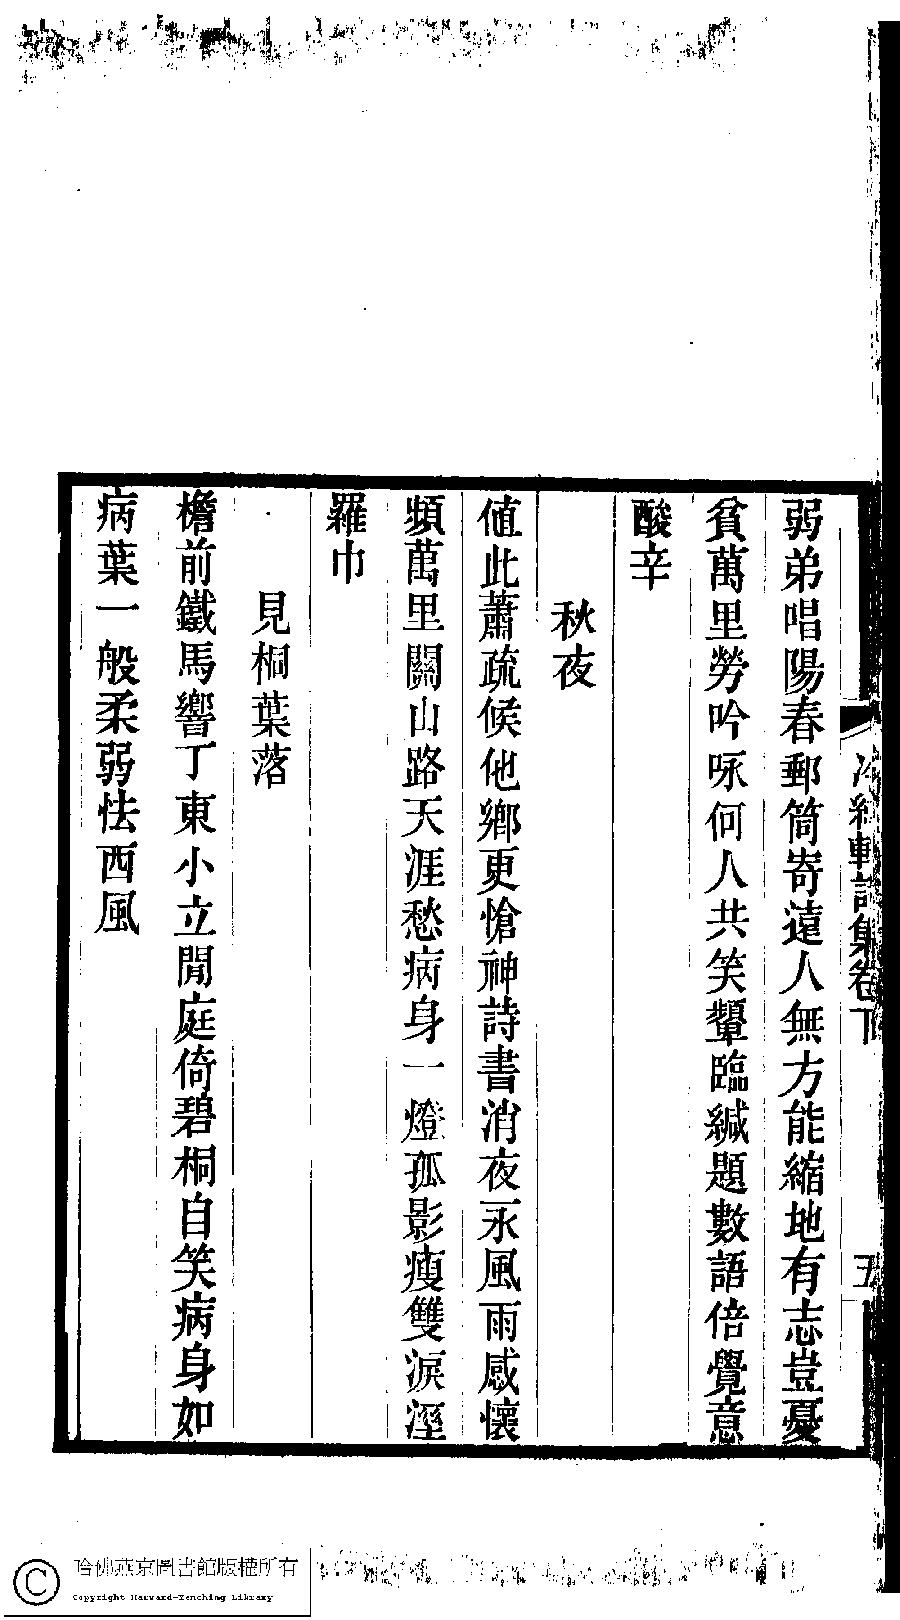 弱弟唱陽春郵筒寄遠人無方能縮地有志豈憂
貧萬里勞吟咏何人共笑顰臨緘題數語倍覺意
酸辛
秋夜
値此蕭疏候他鄉更愴神詩書消夜永風雨感懷
頻萬里關山路天涯愁病身一燈孤影瘦雙淚溼
羅巾
見桐葉落
檐前鐵馬響丁東小立閒庭倚碧桐自笑病身如
病葉一般柔弱怯西風
軒詩集卷下
五
哈佛燕京圖書館版權所有
Copyright Harvard-Yenching Library